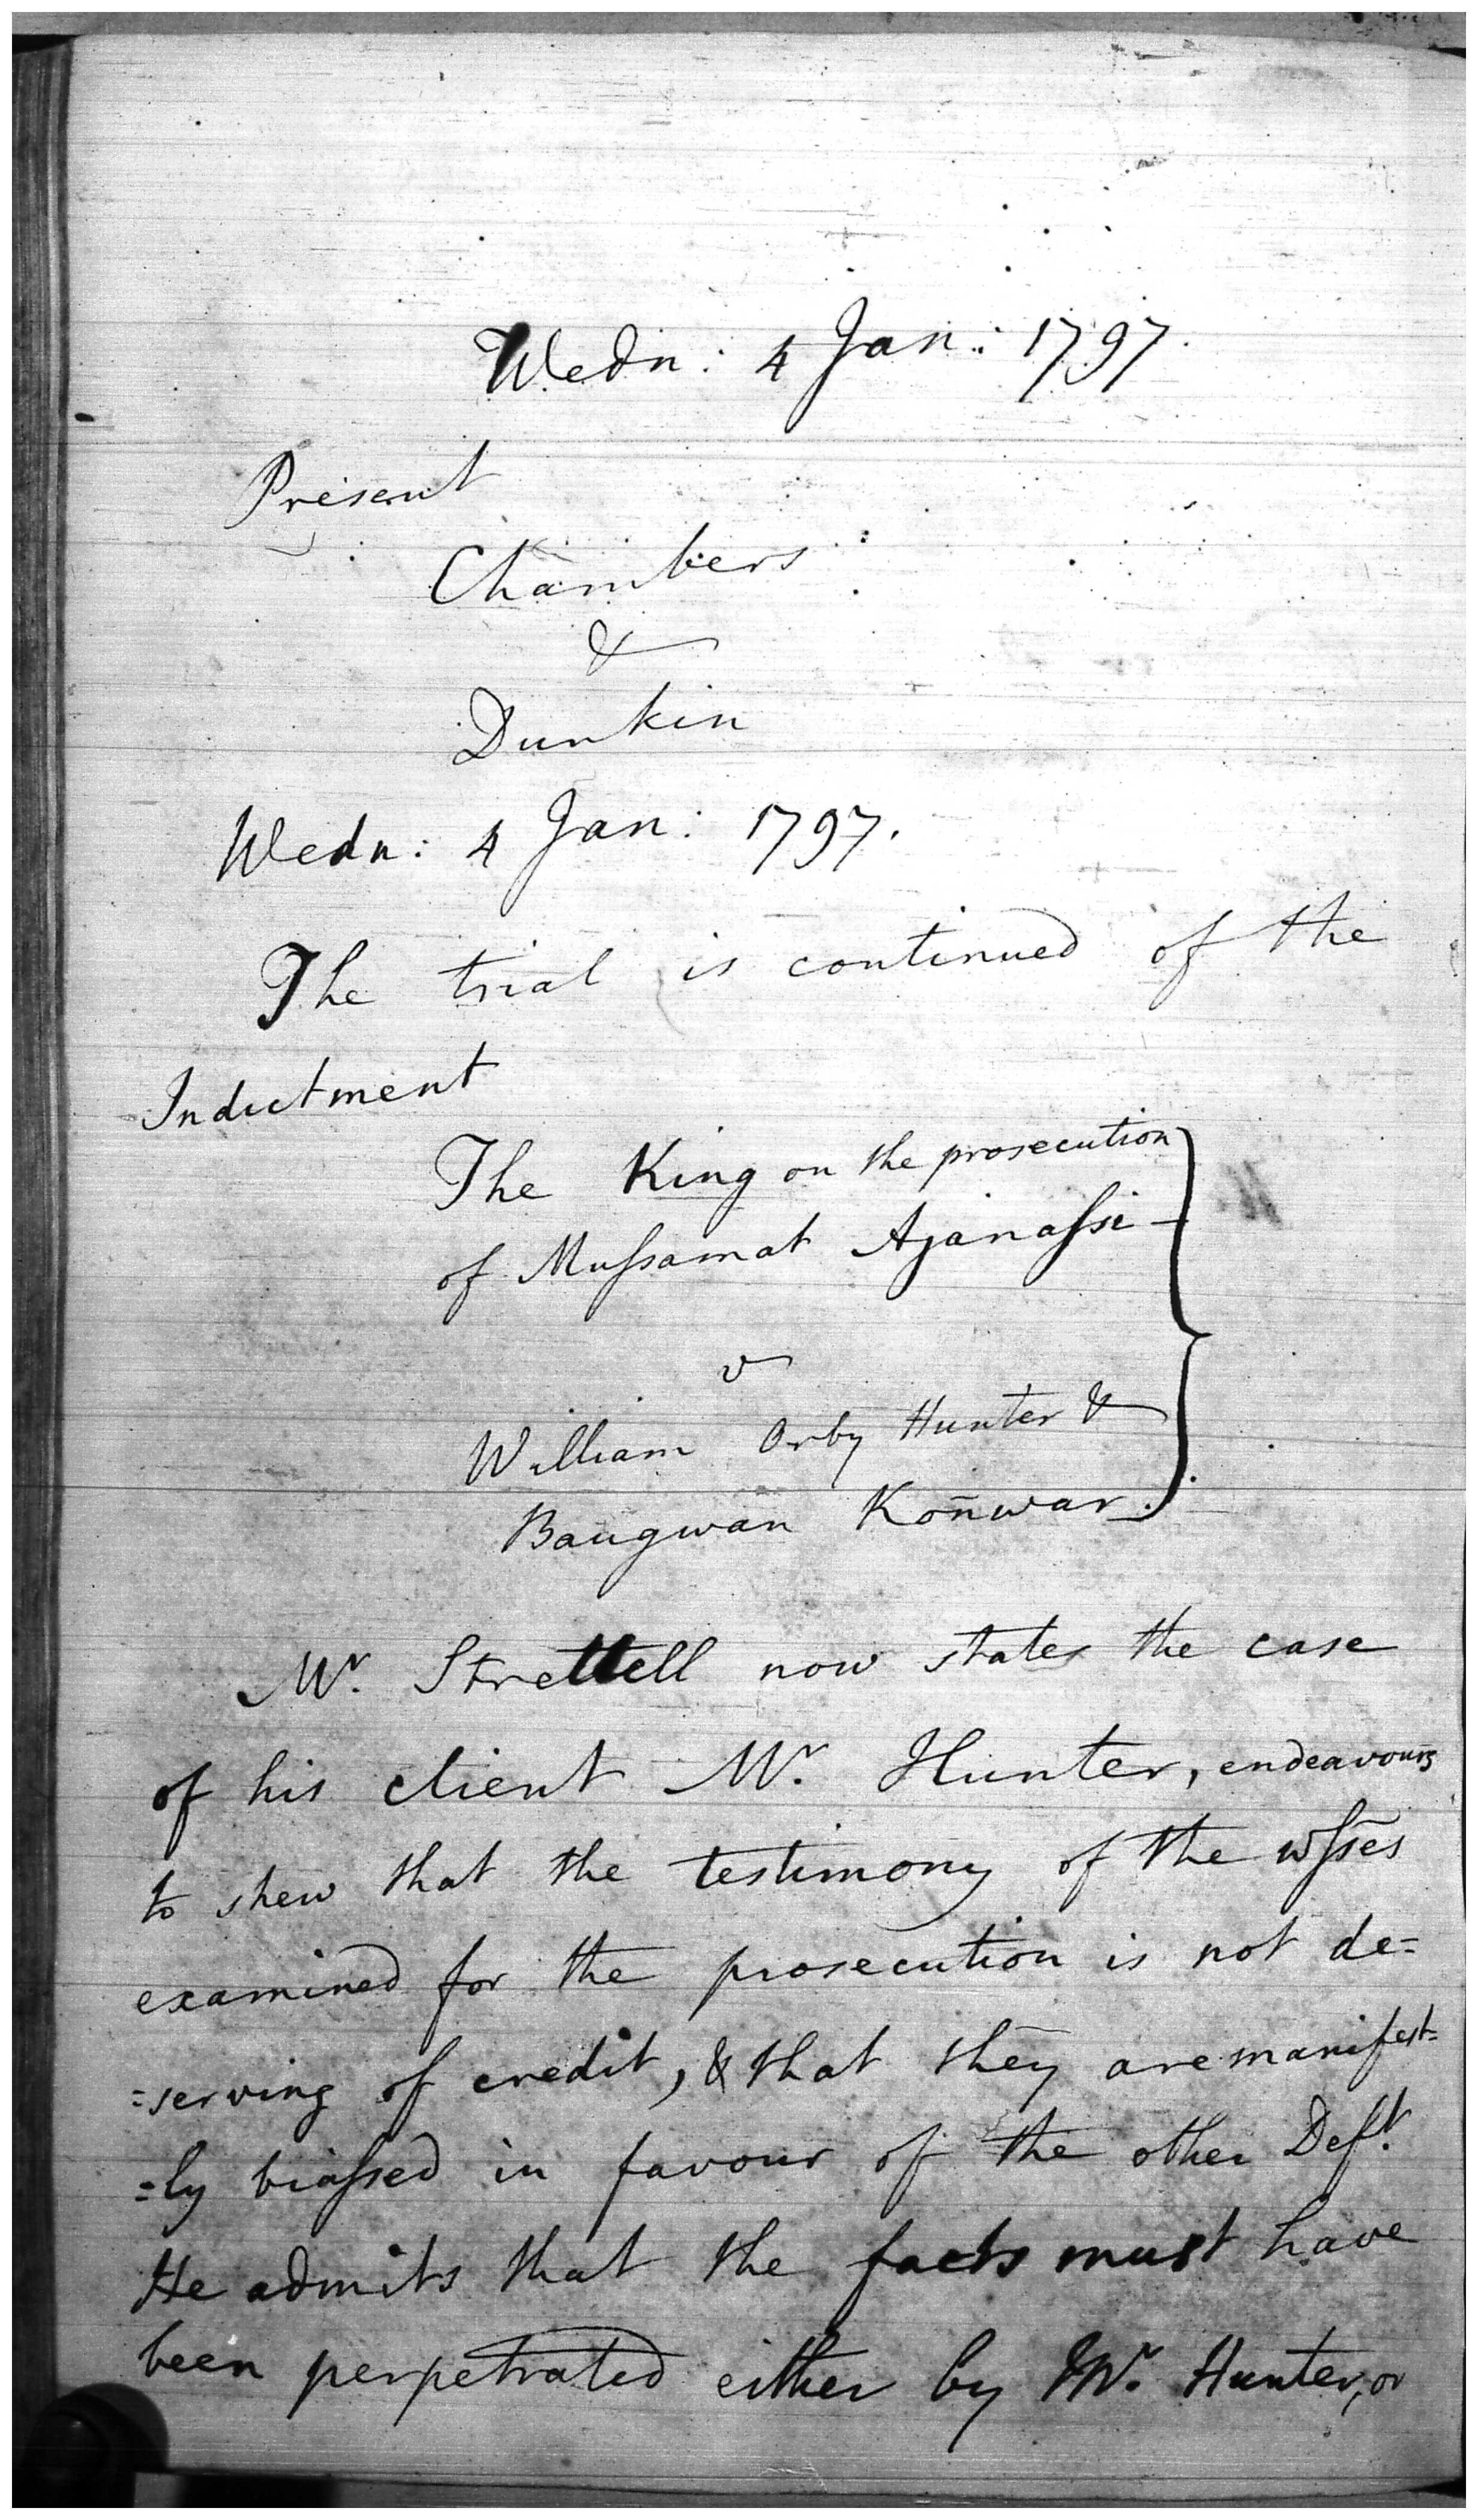 Wedn: 4 Jan: 1797.
Present
Chambers
&
Dunkin
Wedn: 4 Jan: 1797.
The trial is continued of the
Indictment
The King on the prosecution
of Mussamat Ajanassi
v
William Orby Hunter &
Baugwan Konwar.
Mr. Strettell now states the case
of his client Mr. Hunter, endeavours
to shew that the testimony of the wsses
examined for the prosecution is not de=
=serving of credit, & that they are manifest=
=ly biassed in favour of the other Deft.
He admits that the facts must have
been perpetrated either by Mr. Hunter, or